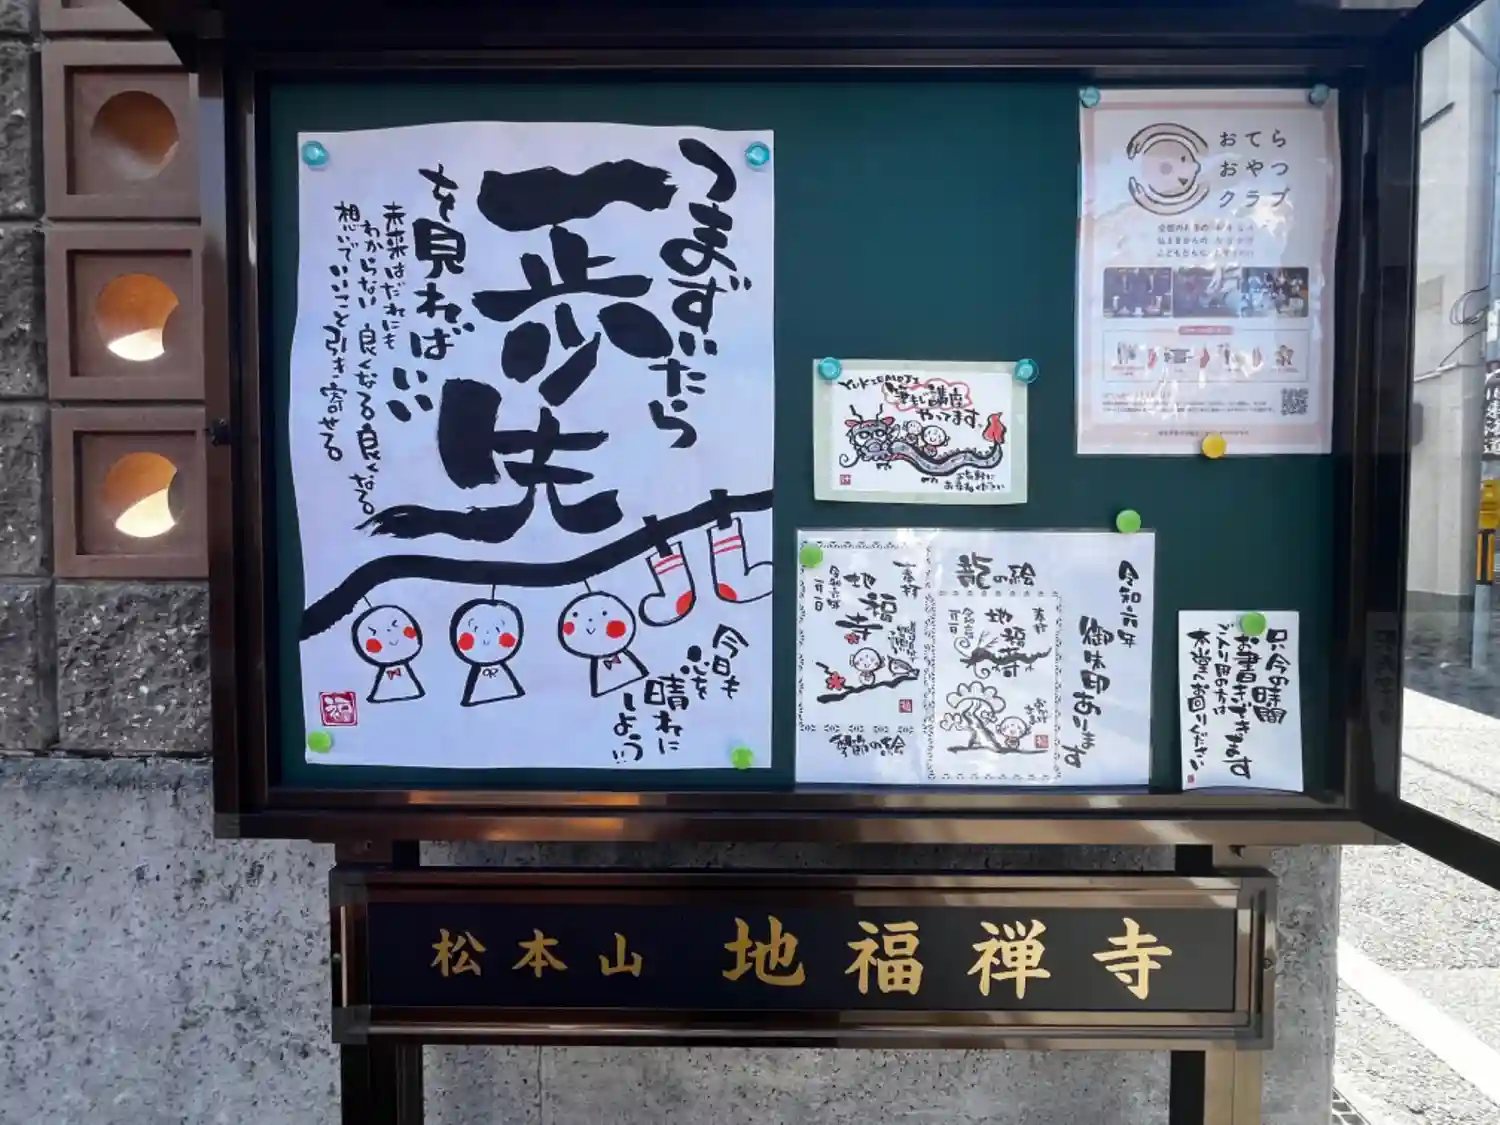 つまずいたら
一歩先
を見ればいい
未来はだれにも
わからない 良くなる良くなる
想いでいいこと引き寄せる
今日も
心を
晴れに
しよう
福
おてら
おやつ
クラブ
筆もじ講座
やってます
お気軽に
お尋ねください
令和六年
御朱印あります
龍の絵
奉拝
地福寺
季節の絵
奉拝
地福寺
令和六年
只今の時間
お書きできます
ご入用の方は
本堂へお回りください
松本山 地福禅寺